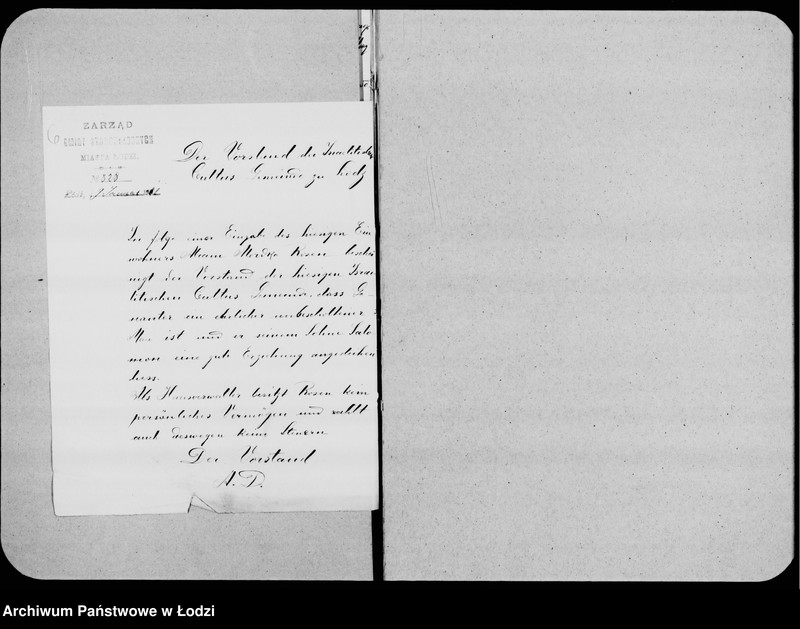 ZARZĄD
MIASTA
№ 328
Der Vorstand der Israelitischen
Cultus Gemeinde zu Lodz
In flge einer Eingabe des hiesigen Ein
wohners Moszka Rosen beschei
nigt der Vorstand der hiesigen Israe
litischen Cultus Gemeinde, dass Ge-
nanter ein ehrlicher unbescholtener
Man ist und er seinem Sohne Salo
mon eine gute Erziehung angedeihen
liess.
Als Hausverwalter besitzt Rosen kein
persönliches Vermögen und zahlt
auch deswegen keine Steuern
Der Vorstand
Archiwum Państwowe w Łodzi